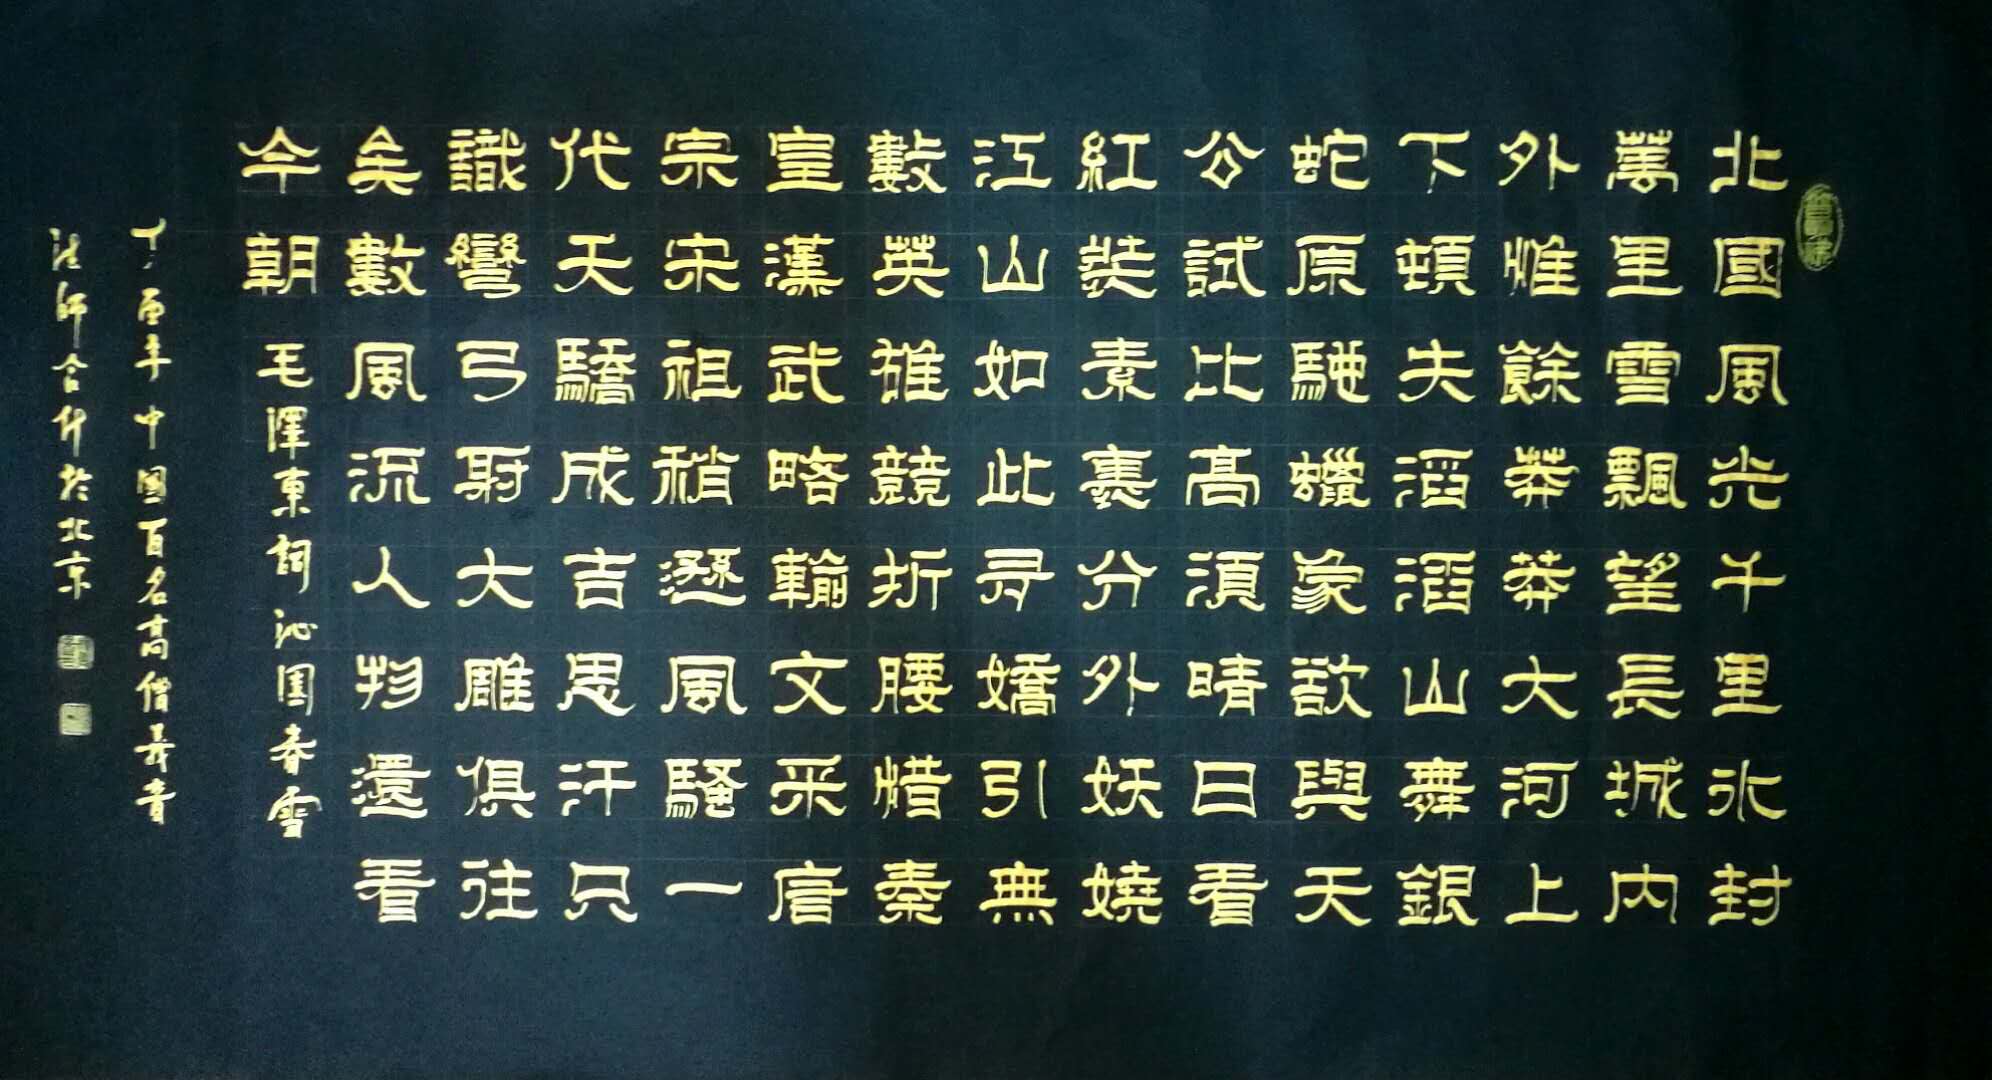 北國風光千里冰封
萬里雪飄望長城內
外惟餘莽莽大河上
下頓失滔滔山舞銀
蛇原馳蠟象欲與天
公試比高須晴日看
紅裝素裹分外妖嬈
江山如此多嬌引無
數英雄競折腰惜秦
皇漢武略輸文采唐
宗宋祖稍遜風騷一
代天驕成吉思汗只
識彎弓射大雕俱往
矣數風流人物還看
今朝 毛澤東詞沁園春雪
丁酉年中國百名高僧昇音
法師合什於北京